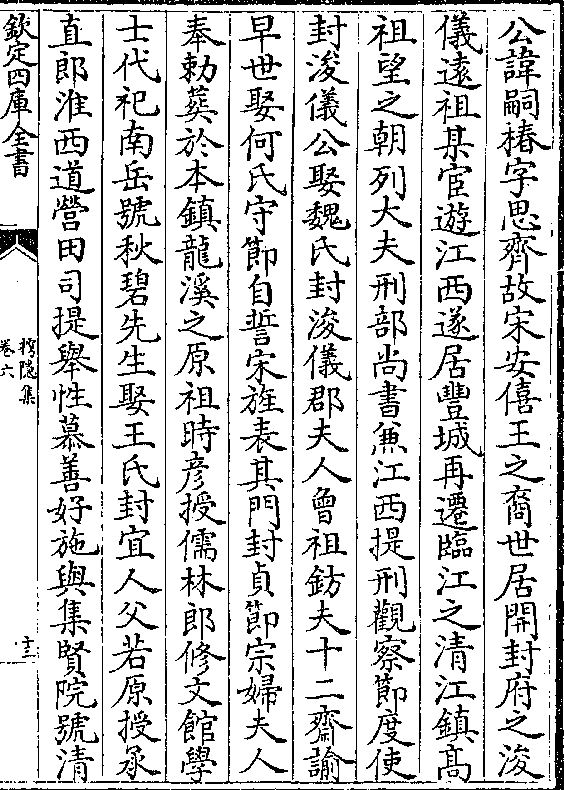 公諱嗣椿字思齊故宋安僖王之裔世居開封府之浚
儀遠祖某宦遊江西遂居豐城再遷臨江之清江鎮髙
祖望之朝列大夫刑部尚書兼江西提刑觀察節度使
封浚儀公娶魏氏封浚儀郡夫人曾祖鈁夫十二齋諭
早世娶何氏守節自誓宋旌表其門封貞節宗婦夫人
奉勅葬於本鎮龍溪之原祖時彦授儒林郎修文館學
士代祀南岳號秋碧先生娶王氏封宜人父若原授承
直郎淮西道營田司提舉性慕善好施與集賢院號清
欽定四庫全書
樗隱集
卷六
十三